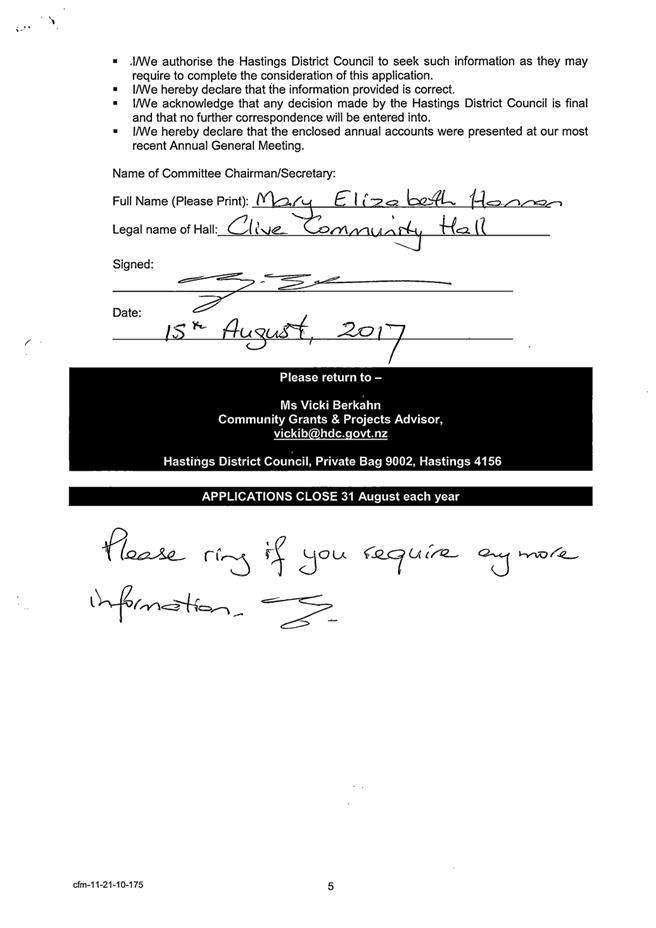 ▪ .I/We authorise the Hastings District Council to seek such information as they may
require to complete the consideration of this application.
▪ I/We hereby declare that the information provided is correct.
▪ I/We acknowledge that any decision made by the Hastings District Council is final
and that no further correspondence will be entered into.
▪ I/We hereby declare that the enclosed annual accounts were presented at our most
recent Annual General Meeting.
Name of Committee Chairman/Secretary:
Full Name (Please Print): Mary Elizabeth
Legal name of Hall: Clive Community Hall
Signed:
Date:
15th August, 2017
Please return to –
Ms Vicki Berkahn
Community Grants & Projects Advisor,
vickib@hdc.govt.nz
Hastings District Council, Private Bag 9002, Hastings 4156
APPLICATIONS CLOSE 31 August each year
Please ring if you require anymore
information.
cfm-11-21-10-175
5